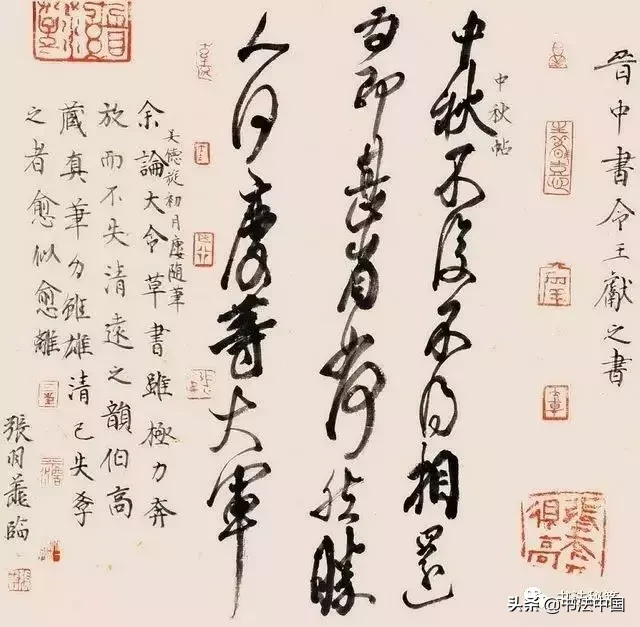 晉中書令王獻之書
中秋帖
中秋不復不得相還
為即甚省如何然勝
人何慶等大軍
吴德旋初月廔隨筆
余論大令草書雖極力奔
放而不失清遠之韻伯高
藏真筆力雖雄清已失斈
之者愈似愈離
張臨
头条 @书法中国